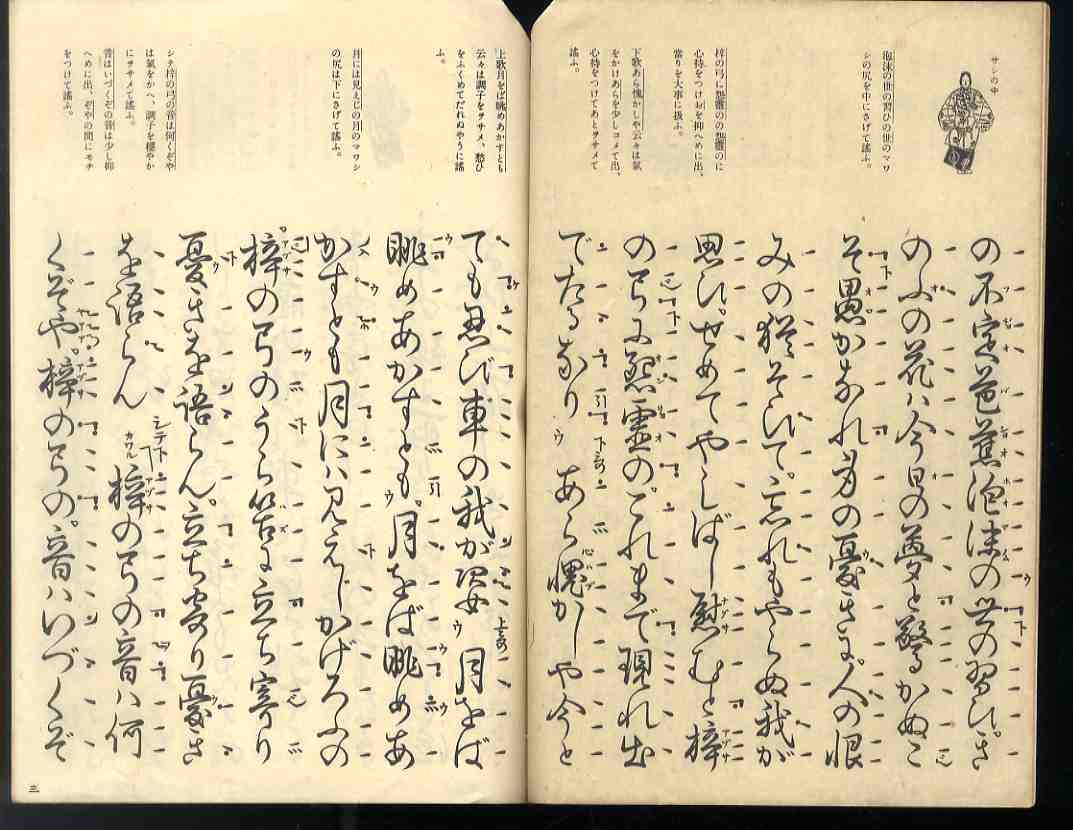 サシの中
泡沫の世の習ひの世のマワ
シの尻を中にさげて謡ふ。
梓の弓に怨霊のの怨霊のに
心持をつけおを抑へめに出、
当りを大事に扱ふ。
下歌あら愧かしや云々は気
をかけあらを少しコメて出、
心持をつけてあとヲサメて
謡ふ。
の不定芭蕉泡沫の世の習ひ。き
のふの花ハ今日の夢と驚かぬこ
そ愚かなれ身の憂きに。人の恨
みの猶そひて。忘れもやらぬ我が
思ひ。せめてやしばし慰むと梓
の弓に怨霊の。これまで現れ出
でたるなり あら愧かしや今と
上歌月をば眺めあかすとも
云々は調子をヲサメ、愁ひ
をふくめてだれぬやうに謡
ふ。
月には見えじの月のマワシ
の尻は下にさげて謡ふ。
シテ梓の弓の音は何くぞや
は気をかへ、調子を穏やか
にヲサメて謡ふ。
音はいづくぞの音は少し抑
へめに出、ぞやの間にモチ
をつけて謡ふ。
ても忍び車の我が姿 月をば
眺めあかすとも。月をば眺めあ
かすとも月にハ見えじかげろふの
梓の弓のうら筈に立ち寄り
憂きを語らん。立ち寄り憂き
を語らん シテ 梓の弓の音ハ何
くぞや。梓の弓の。音ハいづくぞ
三